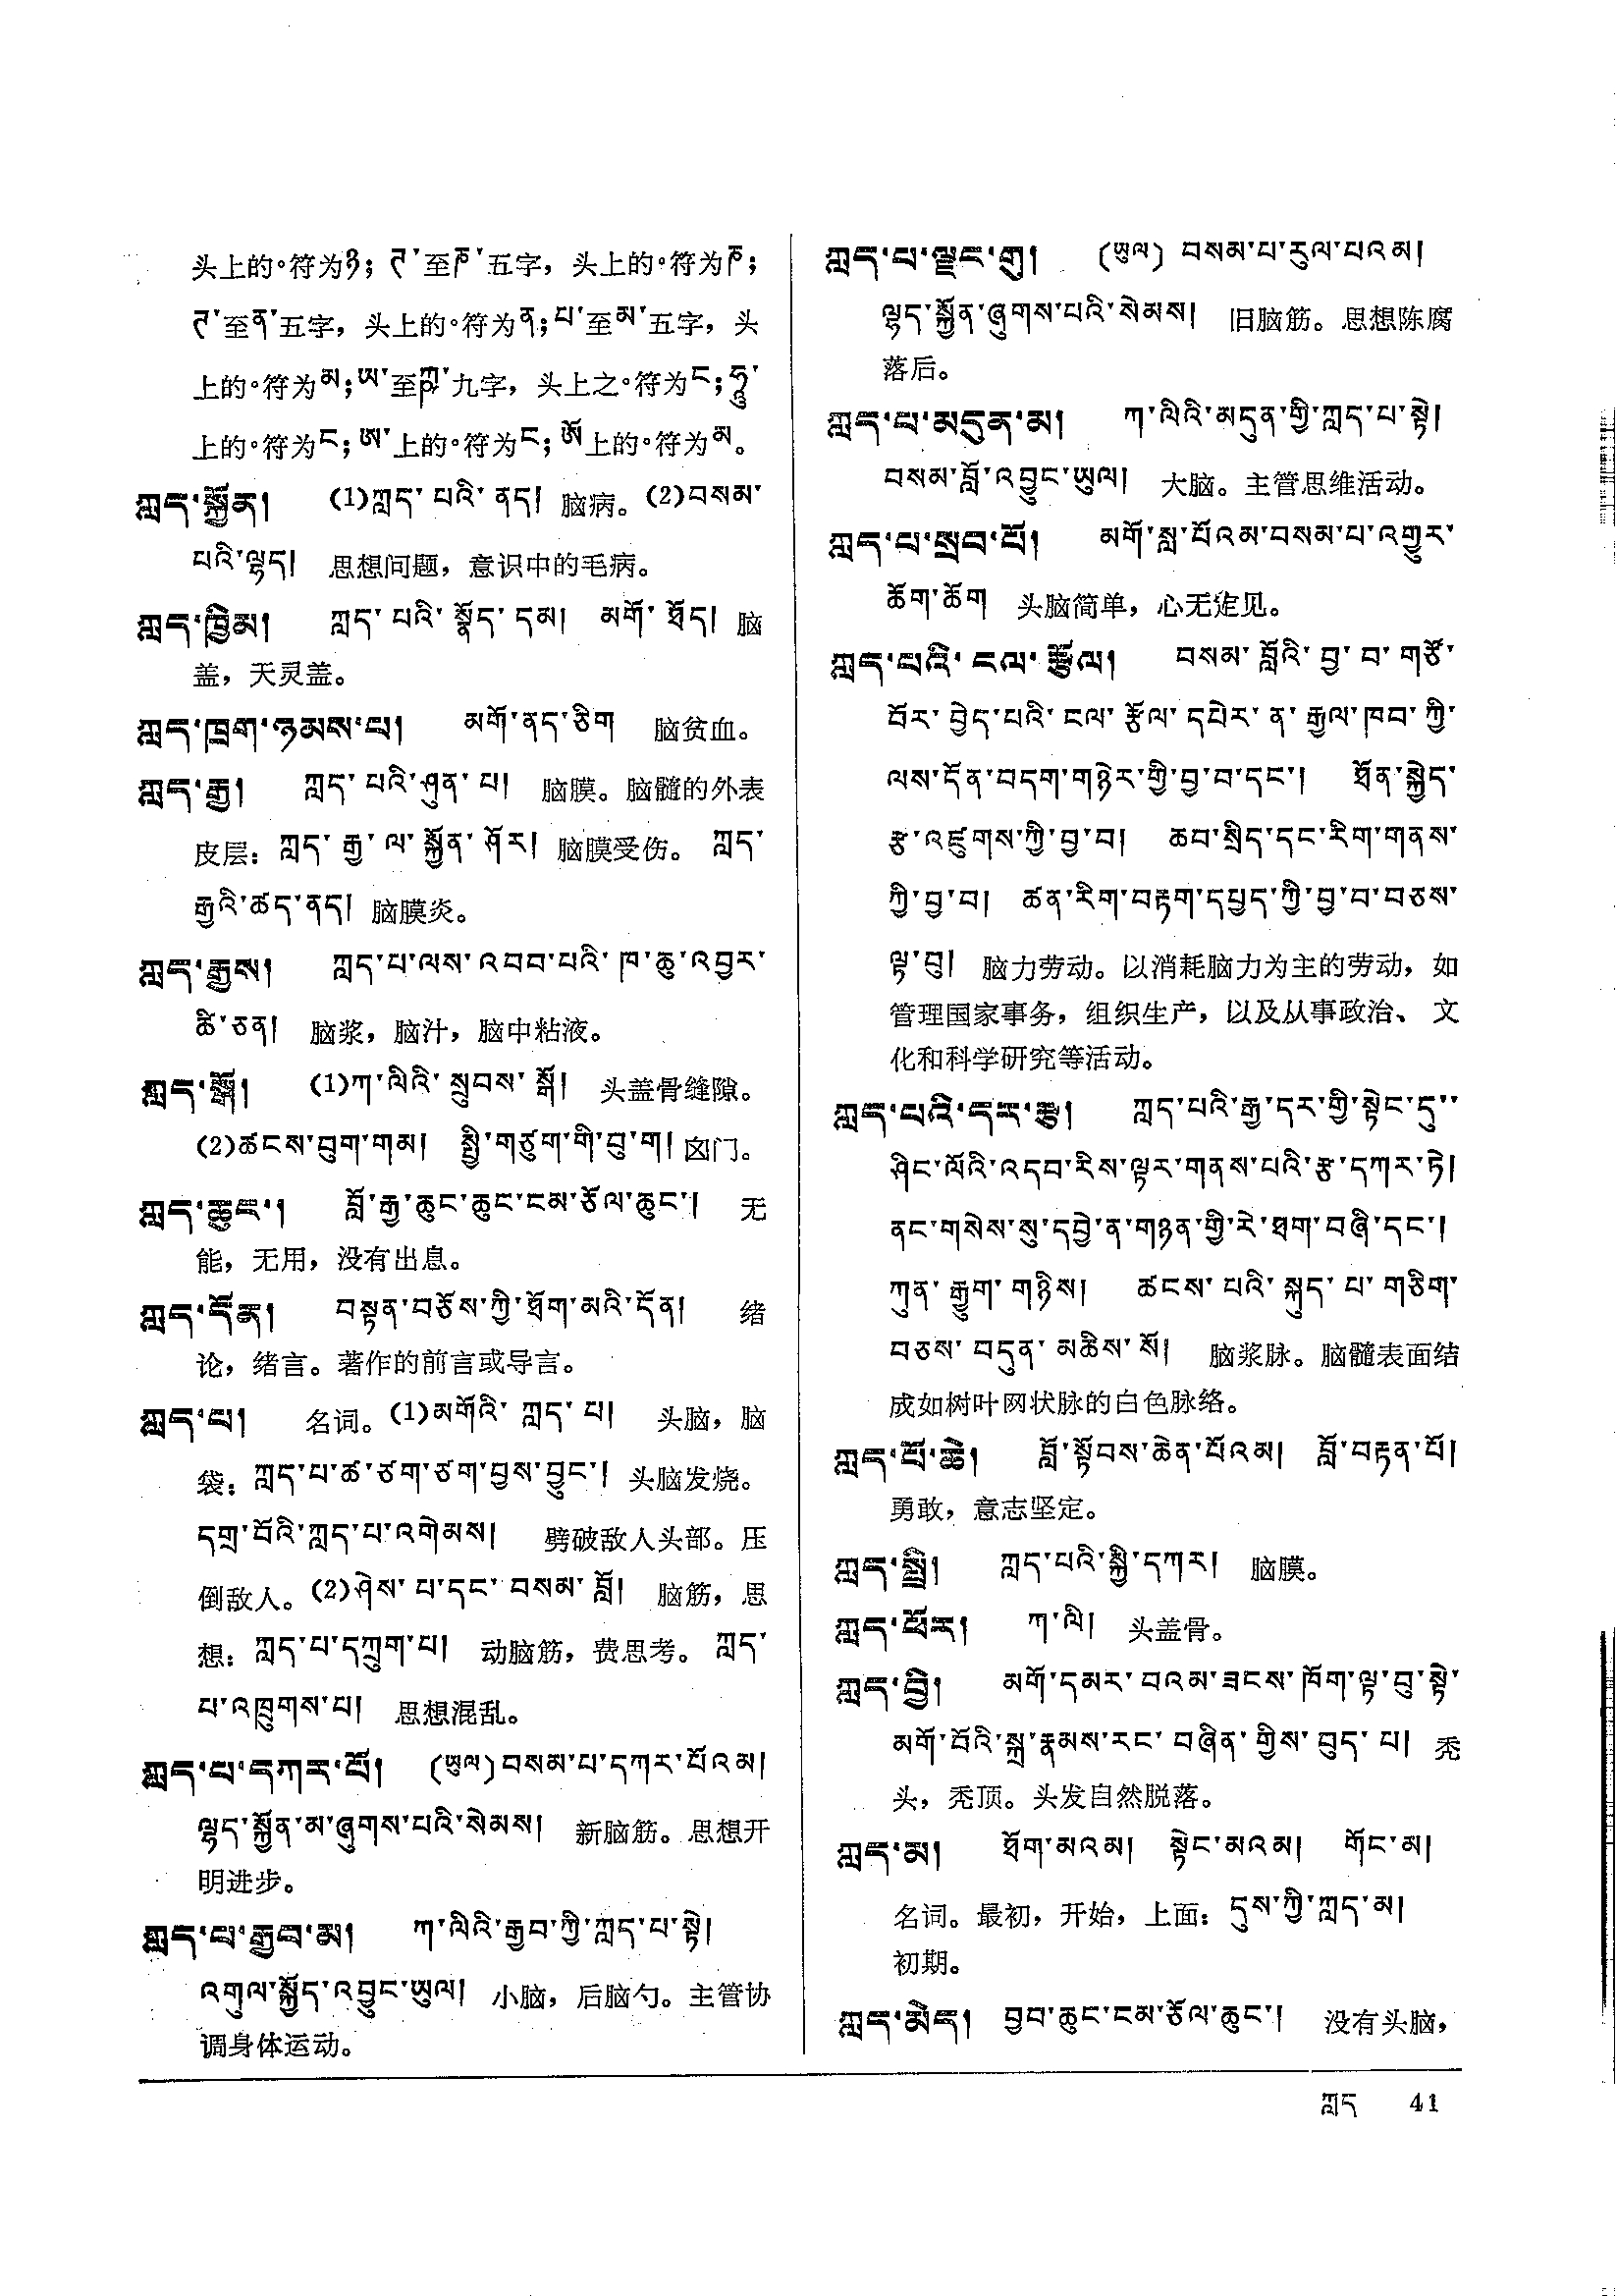 头上的°符为ཉ; ཊ་至ཎ་五字，头上的°符为ཎ;
ཏ་至ན་五字，头上的°符为ན; པ་至མ་五字，头
上的°符为མ; ཡ་至ཀྵ་九字，头上之°符为ང; ཧཱུྃ་
上的°符为ང; ཨ་上的°符为ང; ཨོ上的°符为མ。
ཀླད་སྐྱོན། (1)ཀླད་པའི་ནད། 脑病。(2)བསམ་
པའི་ལྷད། 思想问题，意识中的毛病。
ཀླད་ཁྱིམ། ཀླད་པའི་སྣོད་དམ། མགོ་ཐོད། 脑
盖，天灵盖。
ཀླད་ཁྲག་ཉམས་པ། མགོ་ནད་ཅིག 脑贫血。
ཀླད་རྒྱ། ཀླད་པའི་ཤུན་པ། 脑膜。脑髓的外表
皮层: ཀླད་རྒྱ་ལ་སྐྱོན་ཤོར། 脑膜受伤。 ཀླད་
རྒྱའི་ཚད་ནད། 脑膜炎。
ཀླད་རྒྱས། ཀླད་པ་ལས་འབབ་པའི་ཁ་ཆུ་འབྱར་
ཚི་ཅན། 脑浆，脑汁，脑中粘液。
ཀླད་སྒོ། (1)ཀ་ལིའི་སྲུབས་སྒོ། 头盖骨缝隙。
(2)ཚངས་བུག་གམ། སྤྱི་གཙུག་གི་བུ་ག། 囟门。
ཀླད་ཆུང་། བློ་རྒྱ་ཆུང་ཆུང་ངམ་ཅོལ་ཆུང་། 无
能，无用，没有出息。
ཀླད་དོན། བསྟན་བཅོས་ཀྱི་ཐོག་མའི་དོན། 绪
论，绪言。著作的前言或导言。
ཀླད་པ། 名词。(1)མགོའི་ཀླད་པ། 头脑，脑
袋: ཀླད་པ་ཚ་ཙག་ཙག་བྱས་བྱུང་། 头脑发烧。
དགྲ་བོའི་ཀླད་པ་འགེམས། 劈破敌人头部。压
倒敌人。(2)ཤེས་པ་དང་བསམ་བློ། 脑筋，思
想: ཀླད་པ་དཀྲུག་པ། 动脑筋，费思考。 ཀླད་
པ་འཁྲུགས་པ། 思想混乱。
ཀླད་པ་དཀར་པོ། (ཡུལ) བསམ་པ་དཀར་པོའམ།
ལྷད་སྐྱོན་མ་ཞུགས་པའི་སེམས། 新脑筋。思想开
明进步。
ཀླད་པ་རྒྱབ་མ། ཀ་ལིའི་རྒྱབ་ཀྱི་ཀླད་པ་སྟེ།
འགུལ་སྐྱོད་འབྱུང་ཡུལ། 小脑，后脑勺。主管协
调身体运动。
ཀླད་པ་ལྗང་གུ། (ཡུལ) བསམ་པ་རུལ་པའམ།
ལྷད་སྐྱོན་ཞུགས་པའི་སེམས། 旧脑筋。思想陈腐
落后。
ཀླད་པ་མདུན་མ། ཀ་ལིའི་མདུན་གྱི་ཀླད་པ་སྟེ།
བསམ་བློ་འབྱུང་ཡུལ། 大脑。主管思维活动。
ཀླད་པ་སྲབ་པོ། མགོ་སླ་པོའམ་བསམ་པ་འགྱུར་
ཚོག་ཚོག 头脑简单，心无定见。
ཀླད་པའི་ངལ་རྩོལ། བསམ་བློའི་བྱ་བ་གཙོ་
བོར་བྱེད་པའི་ངལ་རྩོལ་དཔེར་ན་རྒྱལ་ཁབ་ཀྱི་
ལས་དོན་བདག་གཉེར་གྱི་བྱ་བ་དང་། ཐོན་སྐྱེད་
རྩ་འཛུགས་ཀྱི་བྱ་བ། ཆབ་སྲིད་དང་རིག་གནས་
ཀྱི་བྱ་བ། ཚན་རིག་བརྟག་དཔྱད་ཀྱི་བྱ་བ་བཅས་
ལྟ་བུ། 脑力劳动。以消耗脑力为主的劳动，如
管理国家事务，组织生产，以及从事政治、文
化和科学研究等活动。
ཀླད་པའི་དར་རྩ། ཀླད་པའི་རྒྱ་དར་གྱི་སྟེང་དུ་
ཤིང་ལོའི་འདབ་རིས་ལྟར་གནས་པའི་རྩ་དཀར་ཏེ།
ནང་གསེས་སུ་དབྱེ་ན་གཉན་གྱི་རེ་ཐག་བཞི་དང་།
ཀུན་རྒྱུག་གཉིས། ཚངས་པའི་སྐུད་པ་གཅིག་
བཅས་བདུན་མཆིས་སོ། 脑浆脉。脑髓表面结
成如树叶网状脉的白色脉络。
ཀླད་པོ་ཆེ། བློ་སྟོབས་ཆེན་པོའམ། བློ་བརྟན་པོ།
勇敢，意志坚定。
ཀླད་སྤྲི། ཀླད་པའི་སྐྱི་དཀར། 脑膜。
ཀླད་ཕོར། ཀ་ལི། 头盖骨。
ཀླད་བྱི། མགོ་དམར་བའམ་ཟངས་ཁོག་ལྟ་བུ་སྟེ་
མགོ་བོའི་སྐྲ་རྣམས་རང་བཞིན་གྱིས་བུད་པ། 秃
头，秃顶。头发自然脱落。
ཀླད་མ། ཐོག་མའམ། སྟེང་མའམ། གོང་མ།
名词。最初，开始，上面: དུས་ཀྱི་ཀླད་མ།
初期。
ཀླད་མེད། བྱབ་ཆུང་ངམ་ཅོལ་ཆུང་། 没有头脑，
ཀླད 41